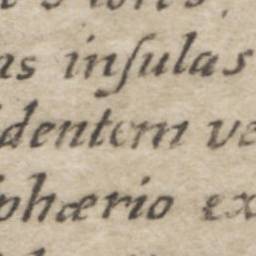 as inſulas
identem ve
phærio ex